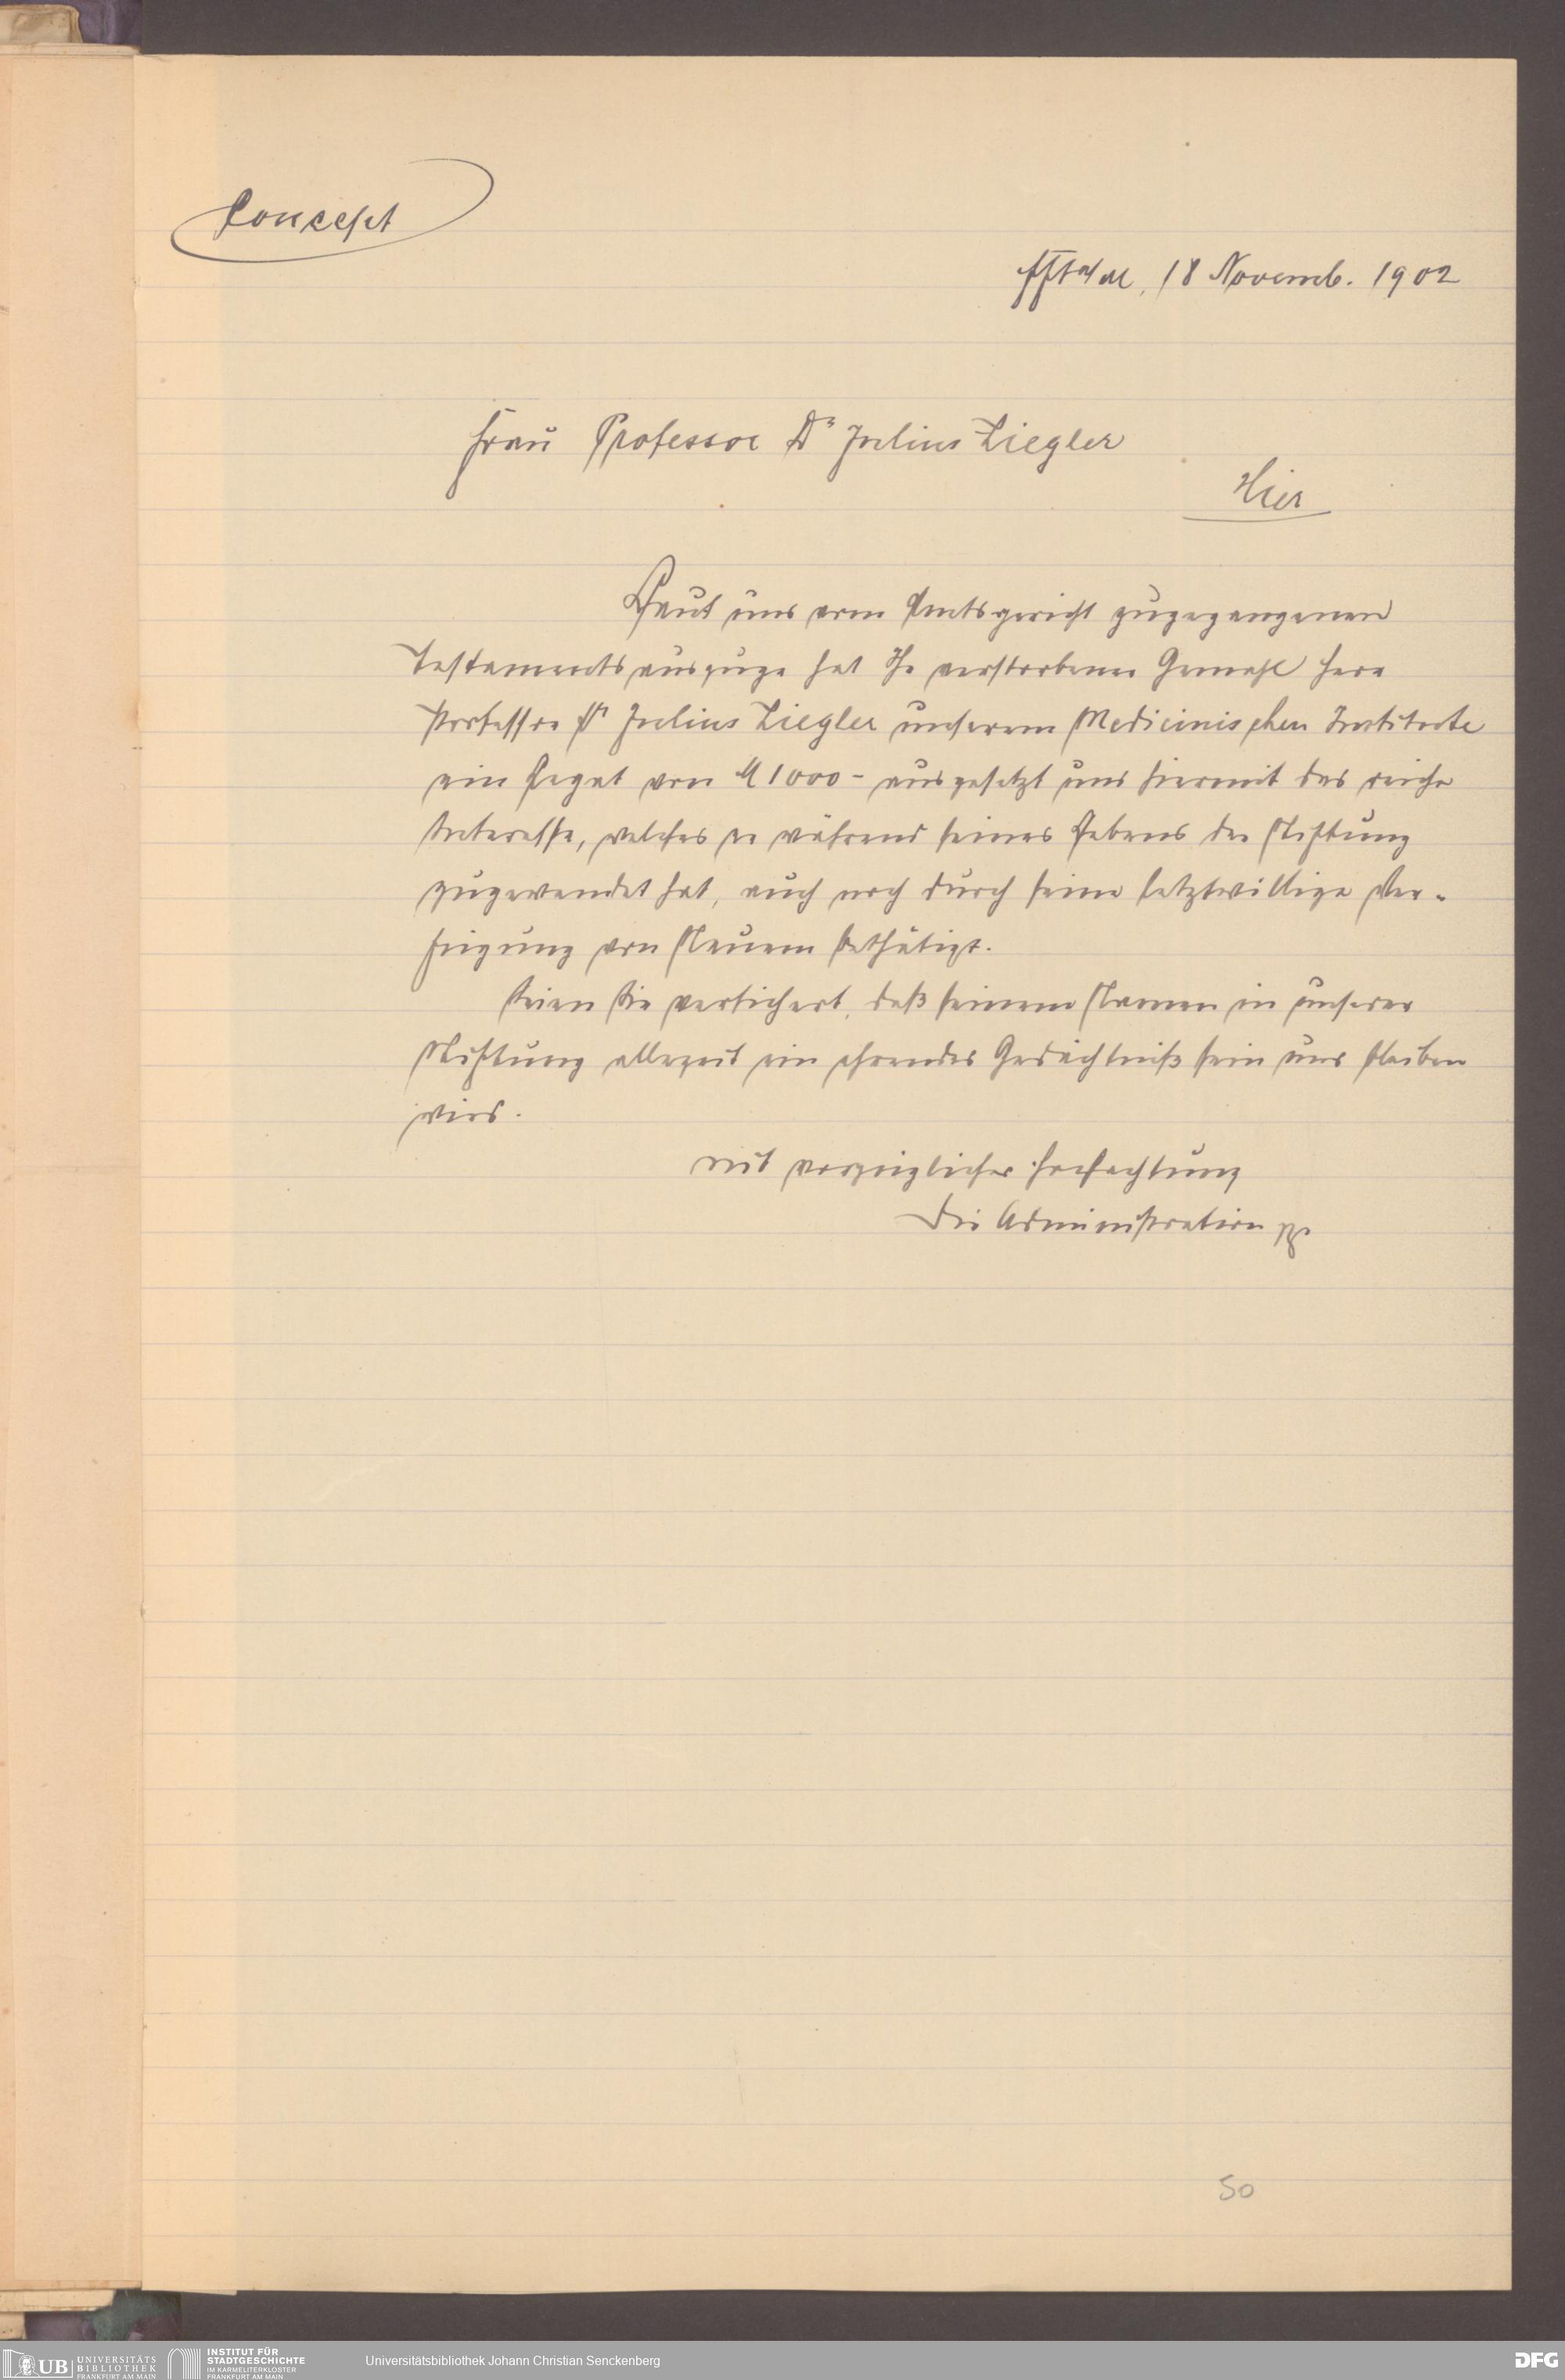 Concept
Ffta/M, 18 Novemb. 1902
Frau Professor Dr Julius Ziegler
Hier
Laut uns vom Amtsgericht zugegangenen
Testamentsauszuge hat Ihr verstorbener Gemahl Herr
Professor Dr Julius Ziegler unserem Medicinischen Institute
ein Legat von M 1000 - ausgesetzt und hiermit das reiche
Interesse, welches er während seines Lebens der Stiftung
zugewendet hat, auch noch durch seine letztwillige Ver-
fügung von Neuem bethätigt.
Seien Sie versichert, daß seinem Namen in unserer
Stiftung allezeit ein ehrendes Gedächtniß sein und bleiben
wird.
Mit vorzüglicher Hochachtung
Die Administration pp.
50
UB UNIVERSITÄTS
BIBLIOTHEK
FRANKFURT AM MAIN
INSTITUT FÜR
STADTGESCHICHTE
IM KARMELITERKLOSTER
FRANKFURT AM MAIN
Universitätsbibliothek Johann Christian Senckenberg
DFG